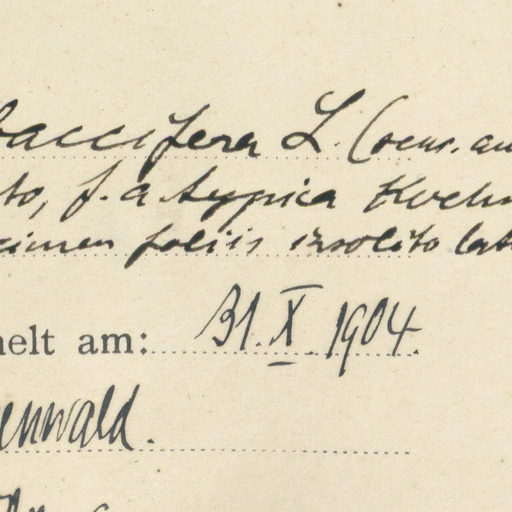 baccifera L. (oeur. au
to, f. a typica Koehn
cimen foliis insolito lat
helt am: 31. X. 1904.
enwald.